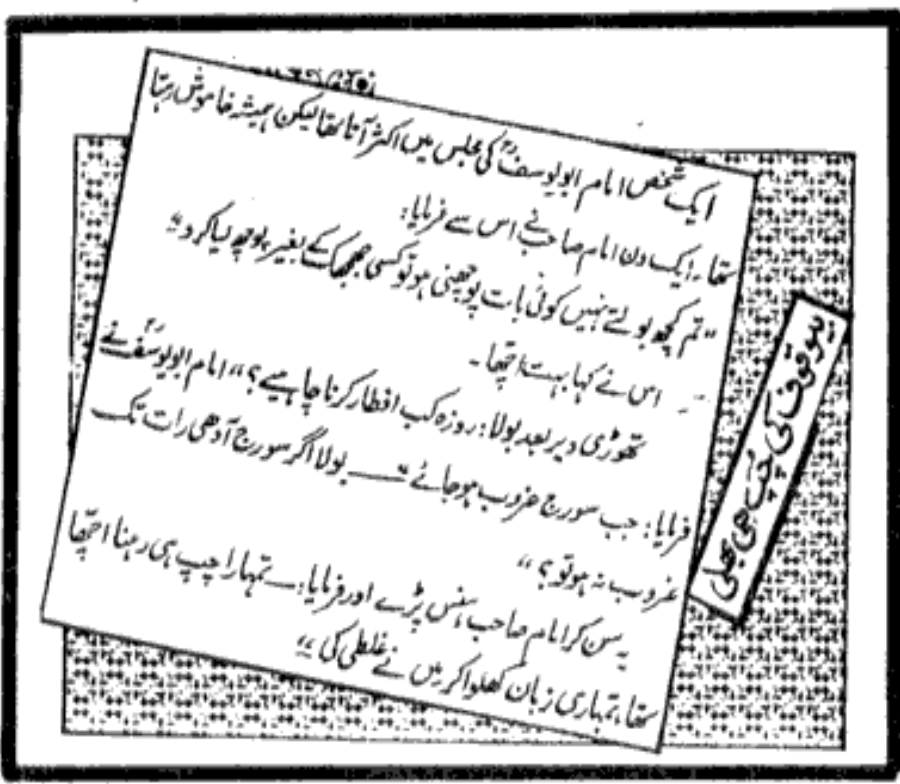 ایک شخص امام ابو یوسفؒ کی مجلس میں اکثر آتا تھا لیکن ہمیشہ خاموش رہتا
تھا۔ ایک دن امام صاحب نے اس سے فرمایا:
"تم کچھ بولتے نہیں کوئی بات پوچھنی ہو تو کسی جھجک کے بغیر پوچھ لیا کرو"
اس نے کہا بہت اچھا۔
تھوڑی دیر بعد بولا: روزہ کب افطار کرنا چاہیے؟" امام ابو یوسفؒ نے
فرمایا: جب سورج غروب ہو جائے" — بولا اگر سورج آدھی رات تک
غروب نہ ہو تو؟"
یہ سن کر امام صاحب ہنس پڑے اور فرمایا: — تمہارا چپ ہی رہنا اچھا
تھا، تمہاری زبان کھلوا کر میں نے غلطی کی"
بیوقوف کی چُپ ہی بھلی